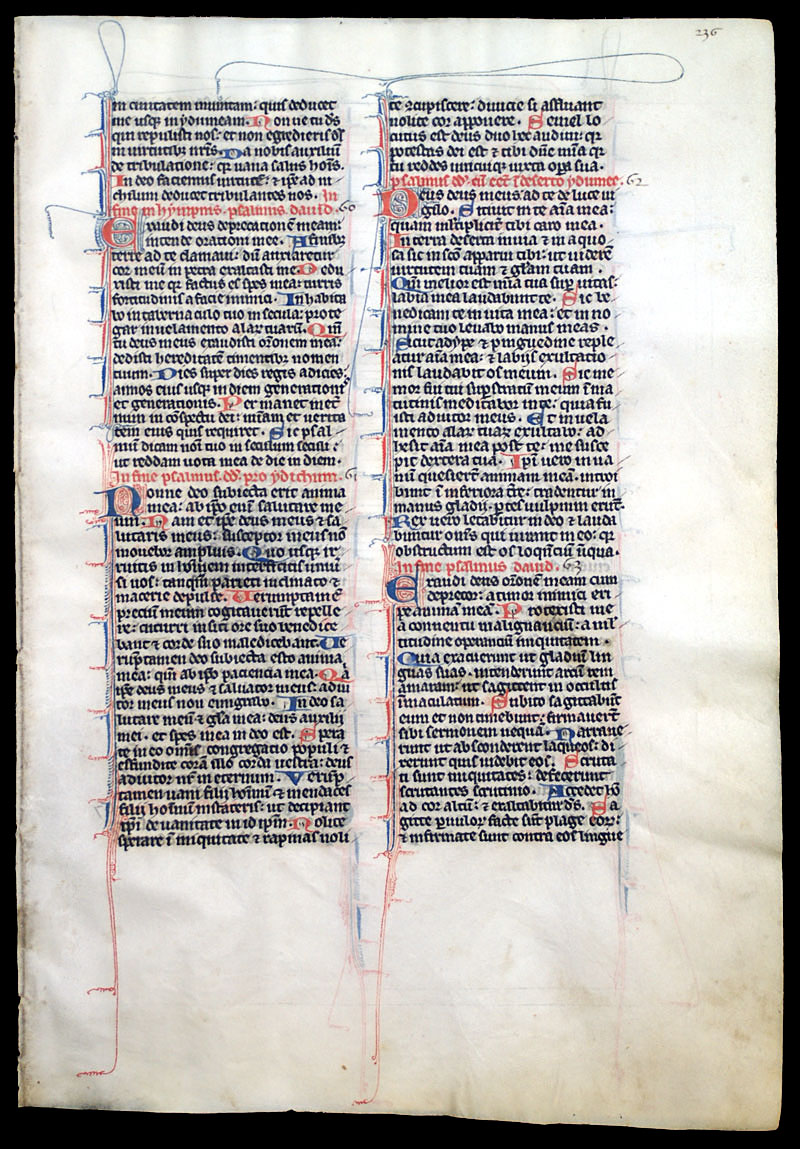 236
in ciuitatem munitam: quis deducet
me usq; in ydumeam. Nonne tu ds̄
qui repulisti nos: et non egredieris ds̄
in uirtutibus nr̄is. Da nobis auxiliū
de tribulatione: qr̄ uana salus hoīs.
In deo faciemus uirtutē: & ip̄e ad ni
chilum deducet tribulantes nos. In
fine in hympnis psalmus dauid. 60
Exaudi deus deprecationē meam:
intende orationi mee. A finibȝ
terre ad te clamaui: dū anxiaretur
cor meū in petra exaltasti me. Dedu
xisti me qr̄ factus es spes mea: turris
fortitudinis a facie inimici. Inhabita
bo in tabernaculo tuo in secula: prote
gar in uelamento alarꝝ tuarū. Qm̄
tu deus meus exaudisti or̄onem meā:
dedisti hereditatē timentibȝ nomen
tuum. Dies super dies regis adicies:
annos eius usq; in diem generationis
et generationis. Permanet in et̄
num in cōspectu dei: mīam et uerita
tem eius quis requiret. Sic psal
mum dicam noī tuo in seculum seculi:
ut reddam uota mea de die in diem.
In fine psalmus dd̄. pro ydithum. 61
Nonne deo subiecta erit anima
mea: ab ip̄o enī salutare me
um. Nam et ip̄e deus meus & sa
lutaris meus: susceptor meus nō
mouebor amplius. Quo usq; ir
ruitis in hominem: interficitis uniū
si uos: tanq̄m parieti inclinato &
macerie depulse. Uerumptam̄
precium meum cogitauerūt repelle
re: cucurri in siti ore suo benedice
bant & corde suo maledicebant. Ue
rūptamen deo subiecta esto anima
mea: qm̄ ab ip̄o paciencia mea. Qā
ip̄e deus meus & saluator meus: adiu
tor meus non emigrabo. In deo sa
lutare meū & gl̄a mea: deus auxilii
mei. et spes mea in deo est. Spera
te in eo om̄is congregatio populi &
effundite corā illo corda uestra: deus
adiutor nr̄ in eternum. Verūp
tamen uani filii hominū & mendaces
filii hominū in stateris: ut decipiant
ip̄i de uanitate in id ip̄m. Nolite
sperare ī iniquitate & rapinas noli
te ꝯcupiscere: diuicie si affluant
nolite cor apponere. Semel lo
cutus est deus duo hec audiui: qr̄
potestas dei est & tibi dn̄e mīa qr̄
tu reddes unicuiq; iuxta opera sua.
psalmus dd̄. cū eēt ī deserto ydumee. 62
Deus deus meus ad te de luce ui
gilo. Sitiuit in te aīa mea:
quam multiplicit̄ tibi caro mea.
In terra deserta inuia & in aquo
sa sic in scō apparui tibi: ut uiderē
uirtutem tuam & glām tuam.
Qm̄ melior est mīa tua sup̄ uitas:
labia mea laudabunt te. Sic be
nedicam te in uita mea: et in no
mine tuo leuabo manus meas.
Sicut adype & pinguedine reple
atur aīa mea: & labiis exultatio
nis laudabit os meum. Sic me
mor fui tui sup̄ stratū meum ī ma
tutinis meditabor in te: quia fu
isti adiutor meus. Et in uela
mento alarꝝ tuarꝝ exultabo: ad
hesit aīa mea post te: me susce
pit dextera tua. Ip̄i uero in ua
nū quesierūt animam meā. introi
bunt ī inferiora tr̄e: tradentur in
manus gladii. ꝑtes uulpium erūt.
Rex uero letabitur in deo & lauda
buntur om̄s qui iurant in eo: qr̄
obstructum est os loquētiū iniqua.
In fine psalmus dauid. 63
Exaudi deus or̄onē meam cum
deprecor: a timor inimici eri
pe animā meā. Protexisti me
a conuentu malignantiū: a mul
titudine operanciū iniquitatem.
Quia exacuerunt ut gladiū lin
guas suas. intenderunt arcū rem
amaram: ut sagittent in occultis
inmaculatum. Subito sagittabūt
eum et non timebunt: firmauerūt
sibi sermonem nequā. Narraue
runt ut absconderent laqueos: di
xerunt quis uidebit eos. Scruta
ti sunt iniquitates: defecerunt
scrutantes scrutinio. Accedet hō
ad cor altū: & exaltabitur ds̄. Sa
gitte paruulorꝝ facte sūt plage eorꝝ:
& infirmate sunt contra eos lingue